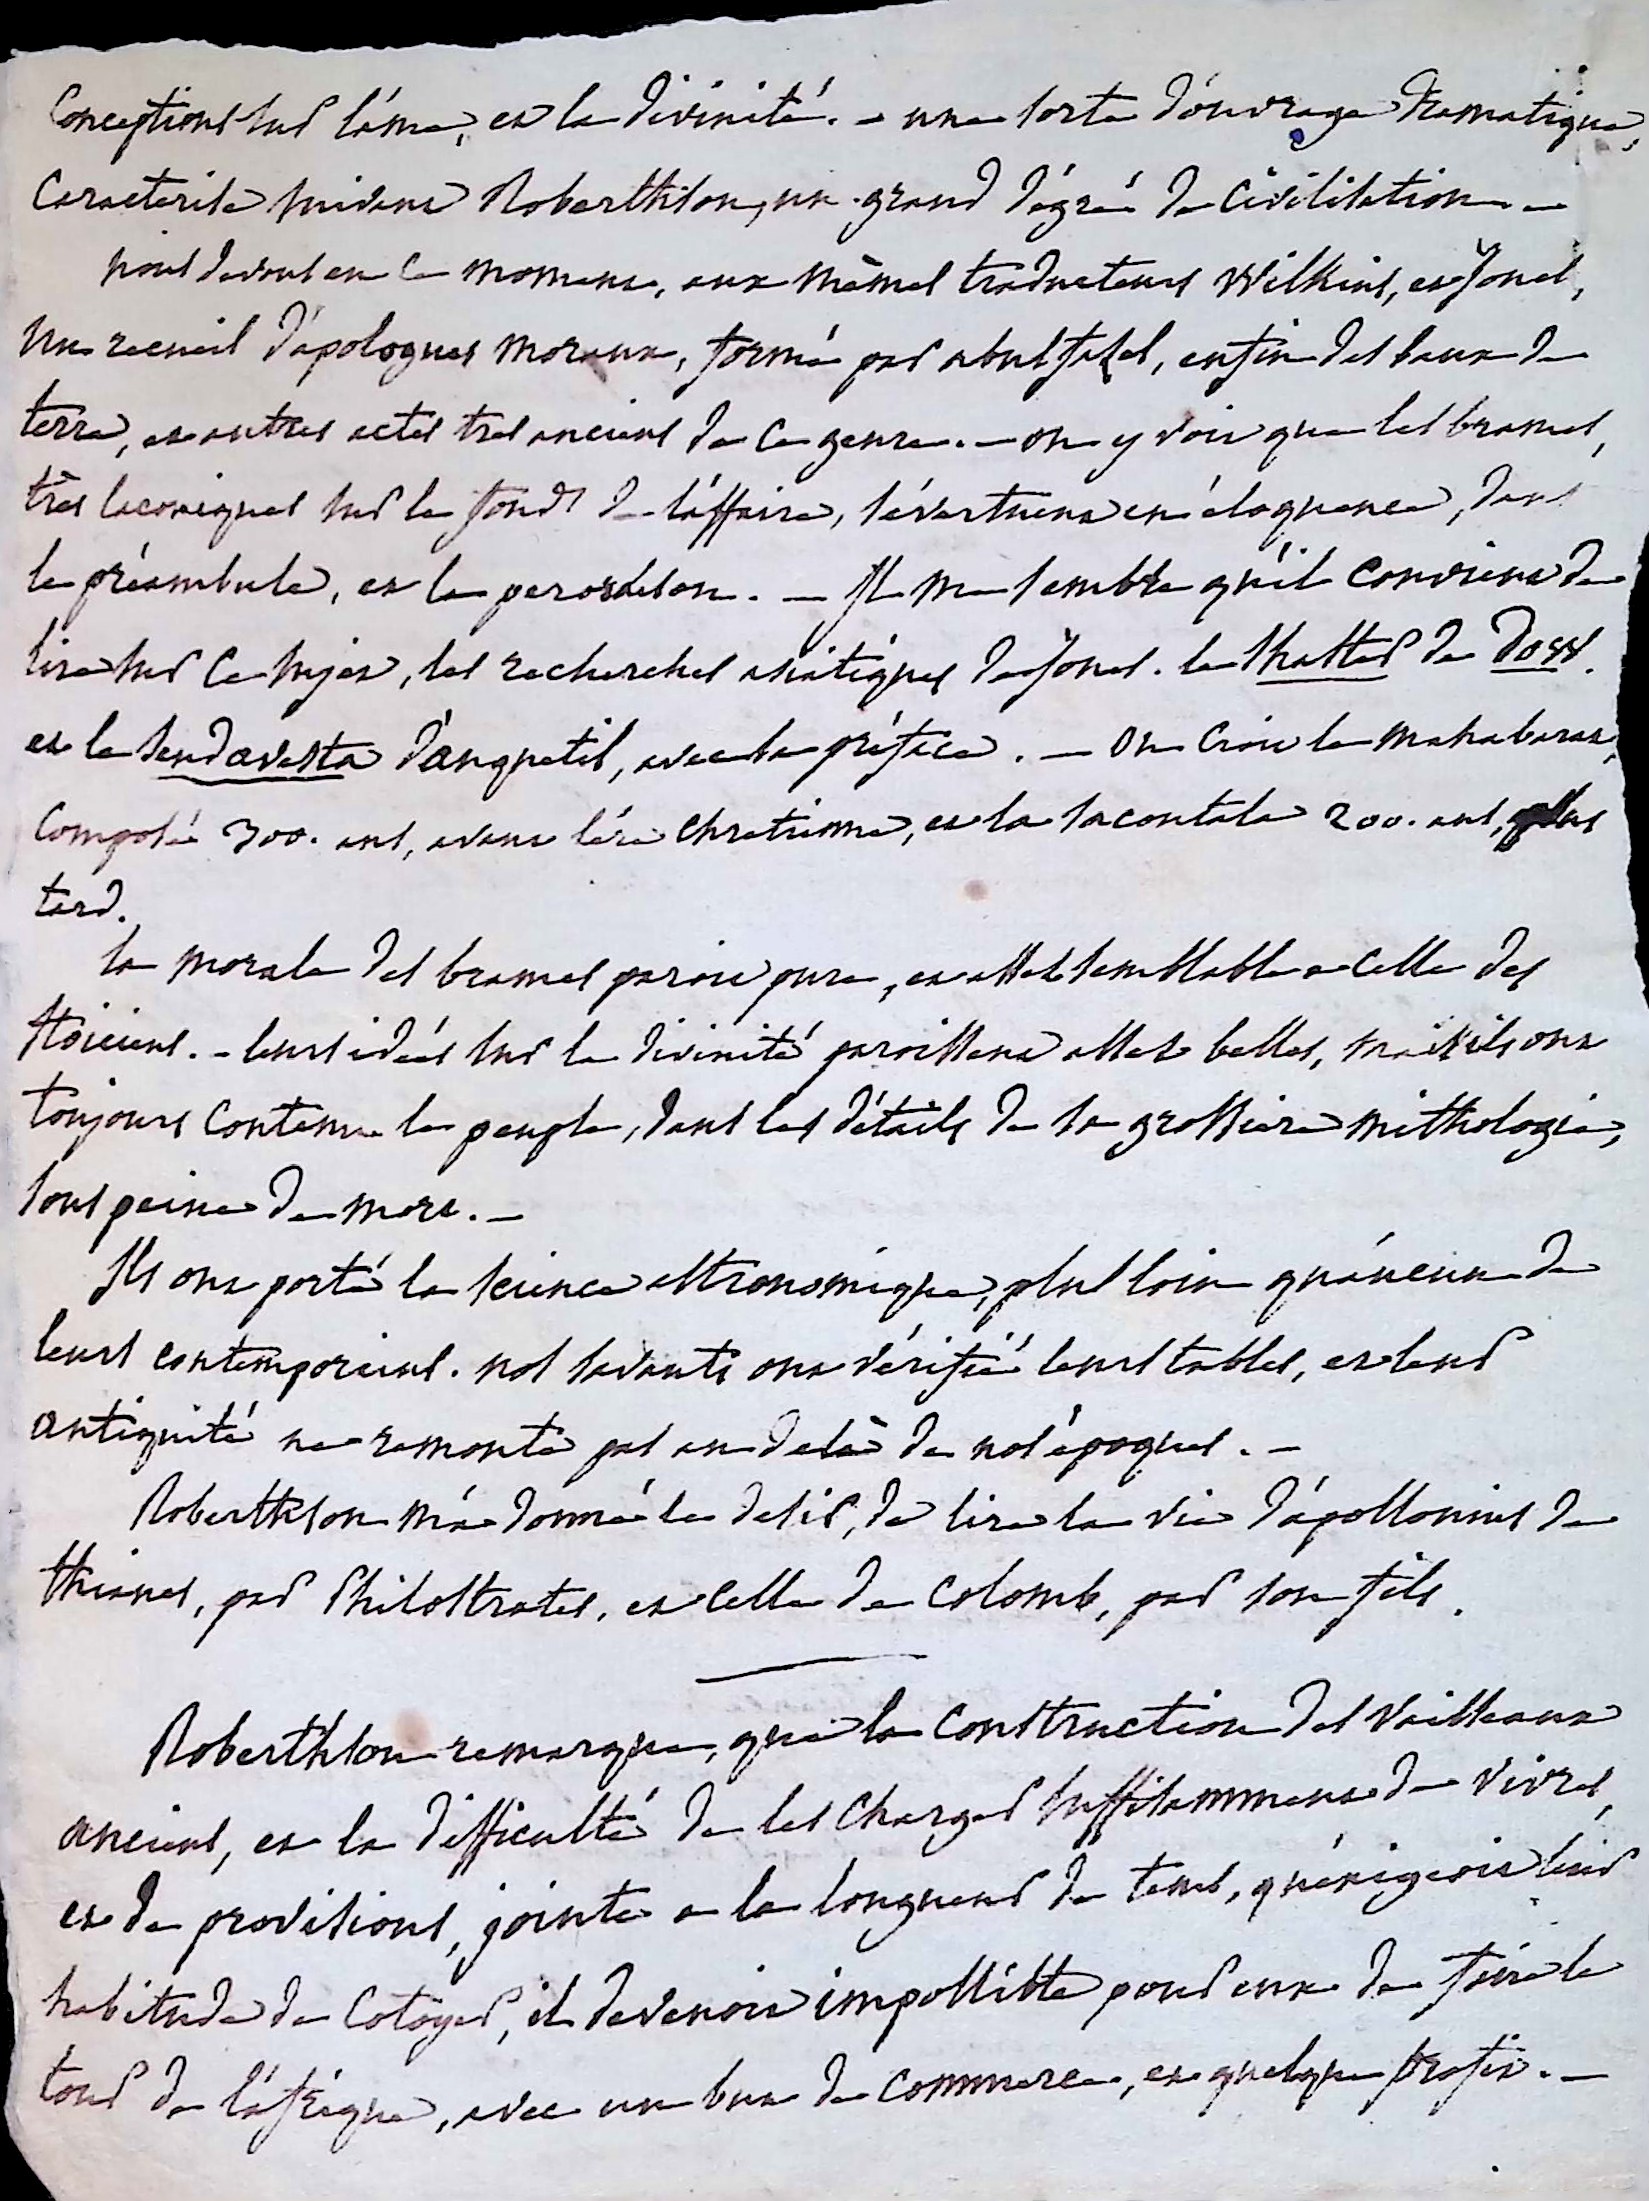 Conceptions sur l'âme, et la divinité. - une sorte d'ouvrage dramatique,
caracterise suivant Roberthson, un grand dégré de civilisation. -
nous devons en ce moment, aux mêmes traducteurs Wilkins, et Jones,
un recueil d'apologues moraux, formé par abulfasel, enfin des baux de
terre, et autres actes tres anciens de ce genre. - on y voit que les brames,
très laconiques sur le fonds de l'affaire, s'évertuent en éloquence, dans
le préambule, et la peroraison. - Il me semble qu'il convient de
lire sur ce sujet, les recherches asiatiques de Jones. le Shatter de Dow.
et le Sendavesta d'anquetil, avec la préface. - On croit le mahabarat,
composé 300. ans, avant l'ére chretienne, et la sacontala 200. ans, plus
tard.
la morale des brames paroit pure, et assez semblable a celle des
stoiciens. - leurs idées sur la divinité paroissent assez belles, mais ils ont
toujours contenu le peuple, dans les détails de sa grossiere mithologie,
sous peine de mort. -
Ils ont porté la science astronomique, plus loin qu'aucun de
leurs contemporains. nos savants ont vérifié leurs tables, et leur
antiquité ne remonte pas au delà de nos époques. -
Roberthson m'a donné le desir, de lire la vie d'apollonius de
thianes, par Philostrates, et celle de colomb, par son fils.
Roberthson remarque, que la construction des vaisseaux
anciens, et la difficulté de les charger suffisamment de vivres,
et de provisions, jointe a la longueur de tems, qu'exigeoit leur
habitude de cotoyer, il devenoit impossible pour eux de faire le
tour de l'afrique, avec un but de commerce, et quelque profit. -